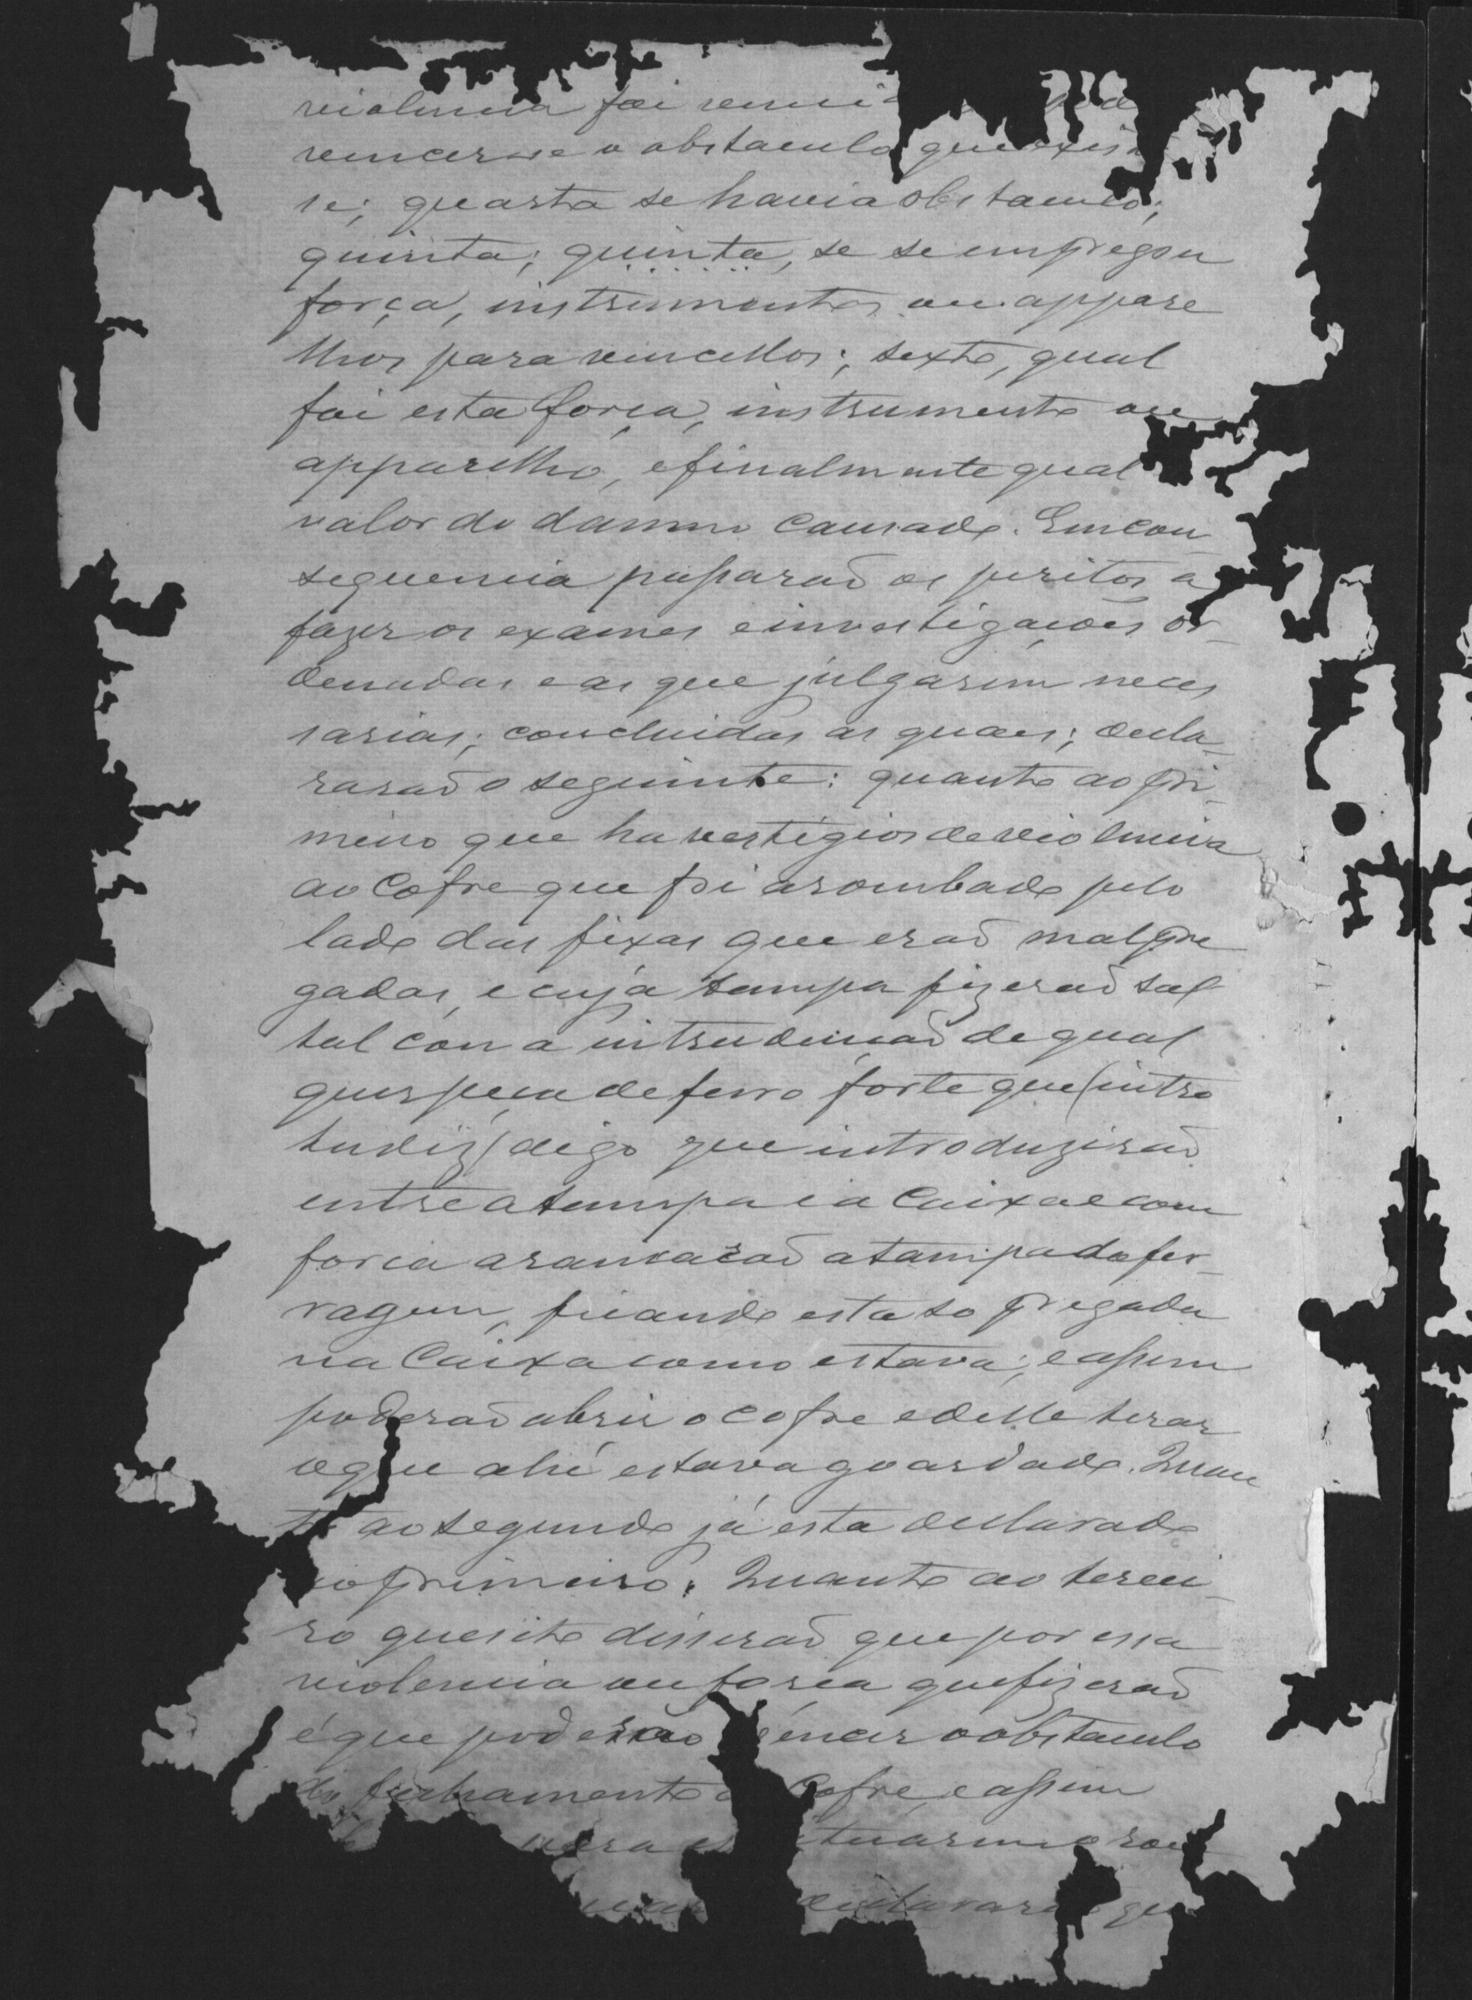 violencia foi venci
vencer-se o obstaculo que exis
te; quarta se havia obstaculo;
quinta; quinta, se se empregou
força, instrumentos ou appare
lhos para vencellos; sexto, qual
foi esta força, instrumento ou
apparelho, e finalmente qual
valor do damno causado. Em con
sequencia passaraõ os peritos a
fazer os exames e investigações or-
denadas e as que julgarem neces
sarias; concluidas as quaes; decla-
raraõ o seguinte: quanto ao pri-
meiro que ha vestigios de violencia
ao Cofre que foi arombado pelo
lado das fixas que eraõ mal pre
gadas, e cuja tampa fizeraõ sal
tal con a intruducaõ de qual
quer peca de ferro forte que (intro
tudiz) digo que introduziraõ
entre a tampa e a Caixa e com
forca arancaraõ a tampa da fer-
ragem, ficando esta so pregada
na Caixa como estava; e assim
poderaõ abrir o cofre e delle terar
o que ahi estava guardado. Quan
to ao segundo já esta declarado
no primeiro. Quanto ao tercei-
ro quesito disseraõ que por essa
violencia ou forca que fizeraõ
é que poderão vencer o obstaculo
do fechamento Cofre, e assim
tuarem o rou
declararaõ que